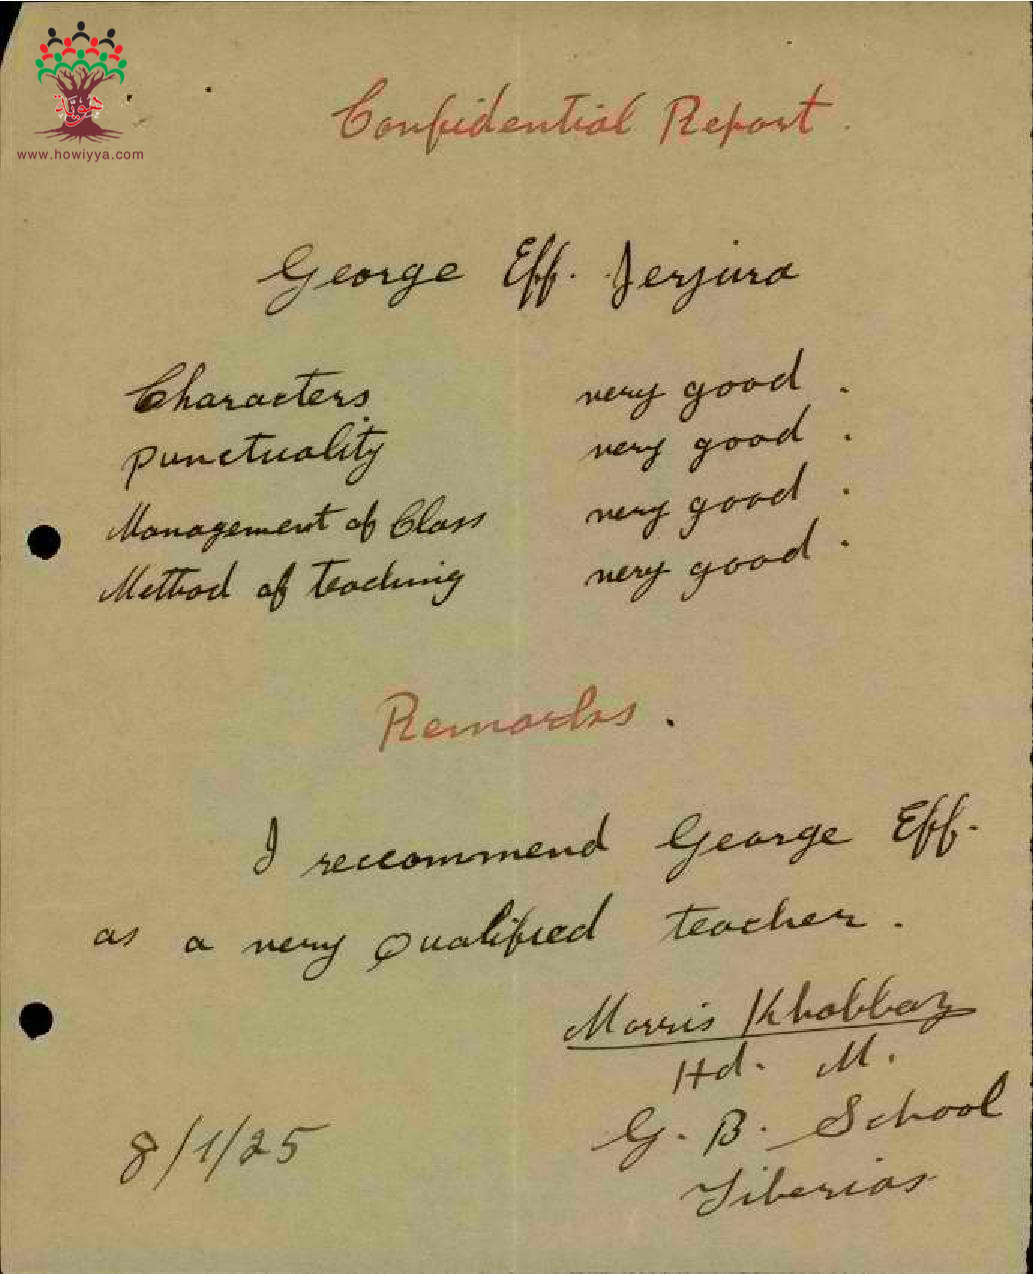 هوية
www.howiyya.com
Confidential Report.
George Eff. Jerjura
Characters very good.
Punctuality very good.
Management of Class very good.
Method of teaching very good.
Remarks.
I reccommend George Eff.
as a very qualified teacher.
Morris Khabbaz
Hd. M.
G. B. School
Tiberias
8/1/25